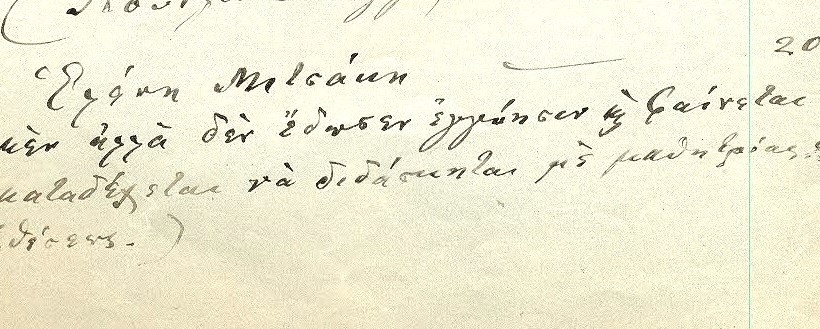 20
Ἑλένη Μητσάκη
μὲν ἀλλὰ δὲν ἔδωσεν ἐγγύησιν καὶ φαίνεται
καταδέχεται νὰ διδάσκηται μὲ μαθητρίας
θέσεως.)